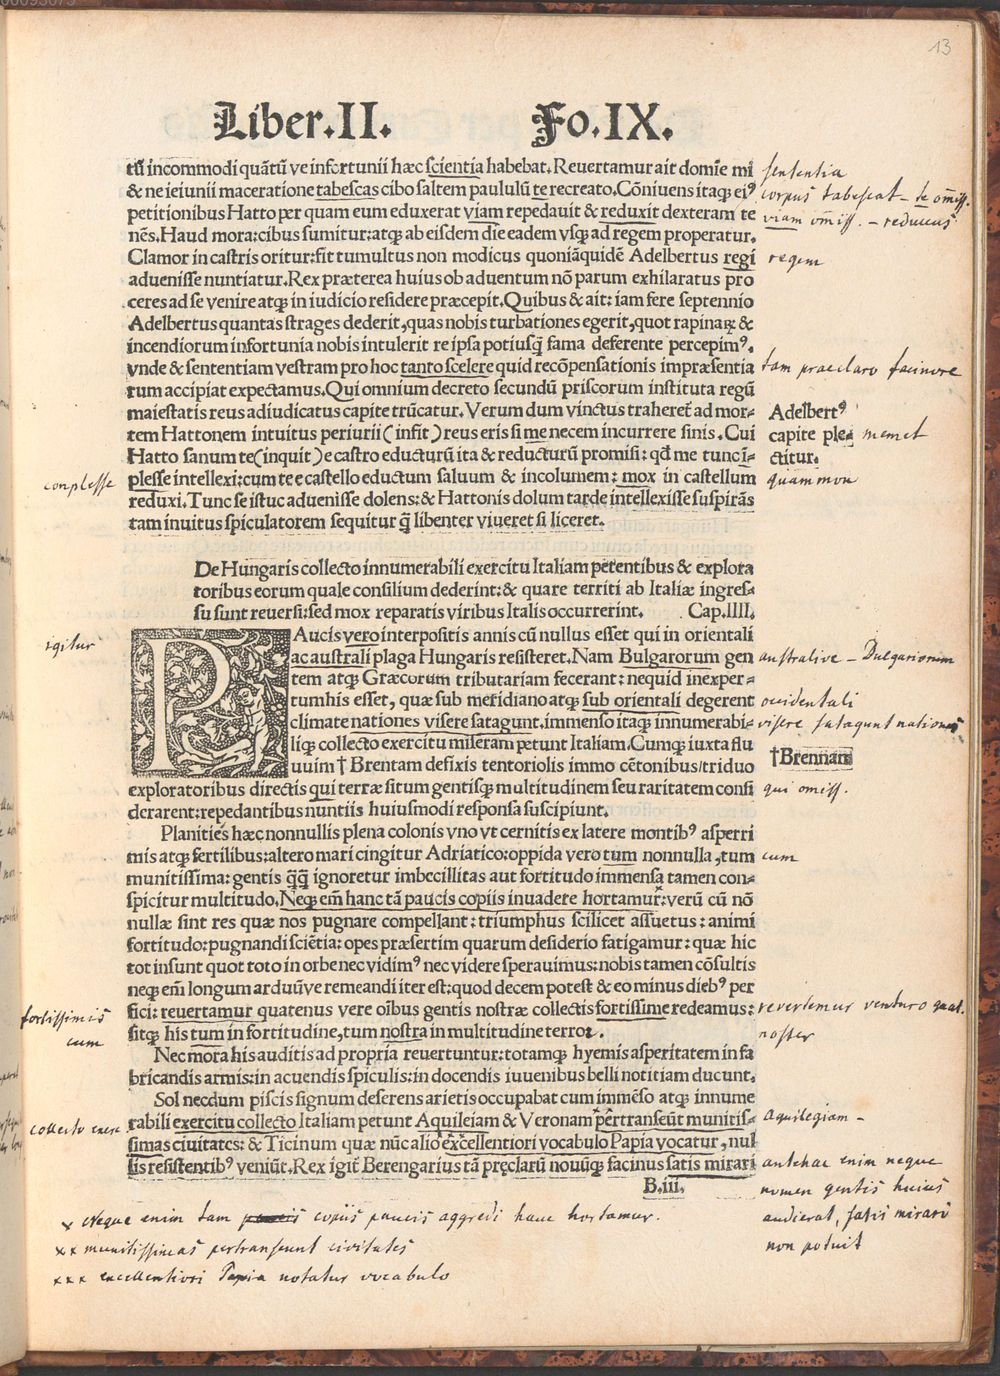 13
Liber.II. Fo.IX.
tũ incommodi quãtũ ve infortunii hæc scientia habebat. Reuertamur ait domíe mi
& ne ieiunii maceratione tabescas cibo saltem paululũ te recreato. Cõniuens itaq; ei⁹
petitionibus Hatto per quam eum eduxerat viam repedauit & reduxit dexteram te
nẽs. Haud mora: cibus sumitur: atq; ab eisdem díe eadem vsq; ad regem properatur.
Clamor in castris oritur: fit tumultus non modicus quoniãquidẽ Adelbertus regi
aduenisse nuntiatur. Rex præterea huius ob aduentum nõ parum exhilaratus pro
ceres ad se venire atq; in iudicio residere præcepit. Quibus & ait: iam fere septennio
Adelbertus quantas strages dederit, quas nobis turbationes egerit, quot rapinaꝝ &
incendiorum infortunia nobis intulerit re ipsa potiusq̃ fama deferente percepim⁹.
vnde & sententiam vestram pro hoc tanto scelere quid recõpensationis impræsentia
rum accipiat expectamus. Qui omnium decreto secundũ priscorum instituta regũ
maiestatis reus adiudicatus capite trũcatur. Verum dum vinctus traheret ad mor=
tem Hattonem intuitus periurii (infit) reus eris si me necem incurrere sinis. Cui
Hatto sanum te (inquit) e castro educturũ ita & reducturũ promisi: qd me tunc ĩ=
plesse intellexi: cum te e castello eductum saluum & incolumem: mox in castellum
reduxi. Tunc se istuc aduenisse dolens: & Hattonis dolum tarde intellexisse suspirãs
tam inuitus spiculatorem sequitur q̃ libenter viueret si liceret.
sententia
corpus tabescat – te omiss.
viam omiss. – reducens
regem
tam praeclaro facinore
Adelbert⁹
capite ple=
ctitur.
memet
quam mox
complesse
De Hungaris collecto innumerabili exercitu Italiam petentibus & explora
toribus eorum quale consilium dederint: & quare territi ab Italiæ ingres=
su sunt reuersi: sed mox reparatis viribus Italis occurrerint. Cap.IIII.
PAucis vero interpositis annis cũ nullus esset qui in orientali
ac australi plaga Hungaris resisteret. Nam Bulgarorum gen
tem atq; Græcorum tributariam fecerant: nequid inexper=
tumhis esset, quæ sub meridiano atq; sub orientali degerent
climate nationes visere satagunt. immenso itaq; innumerabi=
liq; collecto exercitu miseram petunt Italiam. Cumq; iuxta flu
uuim † Brentam defixis tentoriolis immo cẽtonibus/triduo
exploratoribus directis qui terræ situm gentisq; multitudinem seu raritatem consi
derarent: repedantibus nuntiis huiusmodi responsa suscipiunt.
igitur
australive – Bulgariorum
occidentali
visere satagunt nationes
†Brennam
qui omiss.
Planities hæc nonnullis plena colonis vno vt cernitis ex latere montib⁹ asperri
mis atq; fertilibus: altero mari cingitur Adriatico: oppida vero tum nonnulla, tum
munitissima: gentis q̃q̃ ignoretur imbecillitas aut fortitudo immensa tamen con=
spicitur multitudo. Neq; em̃ hanc tã paucis copiis inuadere hortamur: verũ cũ nõ
nullæ sint res quæ nos pugnare compellant: triumphus scilicet assuetus: animi
fortitudo: pugnandi sciẽtia: opes præsertim quarum desiderio fatigamur: quæ hic
tot insunt quot toto in orbe nec vidim⁹ nec videre sperauimus: nobis tamen cõsultis
neq; em̃ longum arduũve remeandi iter est: quod decem potest & eo minus dieb⁹ per
fici: reuertamur quatenus vere oĩbus gentis nostræ collectis fortissime redeamus:
sitq; his tum in fortitudine, tum nostra in multitudine terror.
cum
revertemur venturo quat.
noster
fortissimis
cum
Nec mora his auditis ad propria reuertuntur: totamq; hyemis asperitatem in fa
bricandis armis: in acuendis spiculis: in docendis iuuenibus belli notitiam ducunt.
Sol necdum piscis signum deserens arietis occupabat cum immẽso atq; innume
rabili exercitu collecto Italiam petunt Aquileiam & Veronam pertranseũt munitis=
simas ciuitates: & Ticinum quæ nũc alio excellentiori vocabulo Papia vocatur, nul
lis resistentib⁹ veniũt. Rex igit̃ Berengarius tã pręclarũ nouũq; facinus satis mirari
B.iii.
collecto exerc
Aquilegiam –
antehac enim neque
nomen gentis huius
audierat, satis mirari
non potuit
x Neque enim tam copiis paucis aggredi hanc hortamur.
xx munitissimas pertranseunt civitates
xxx excellentiori Papia notatur vocabulo